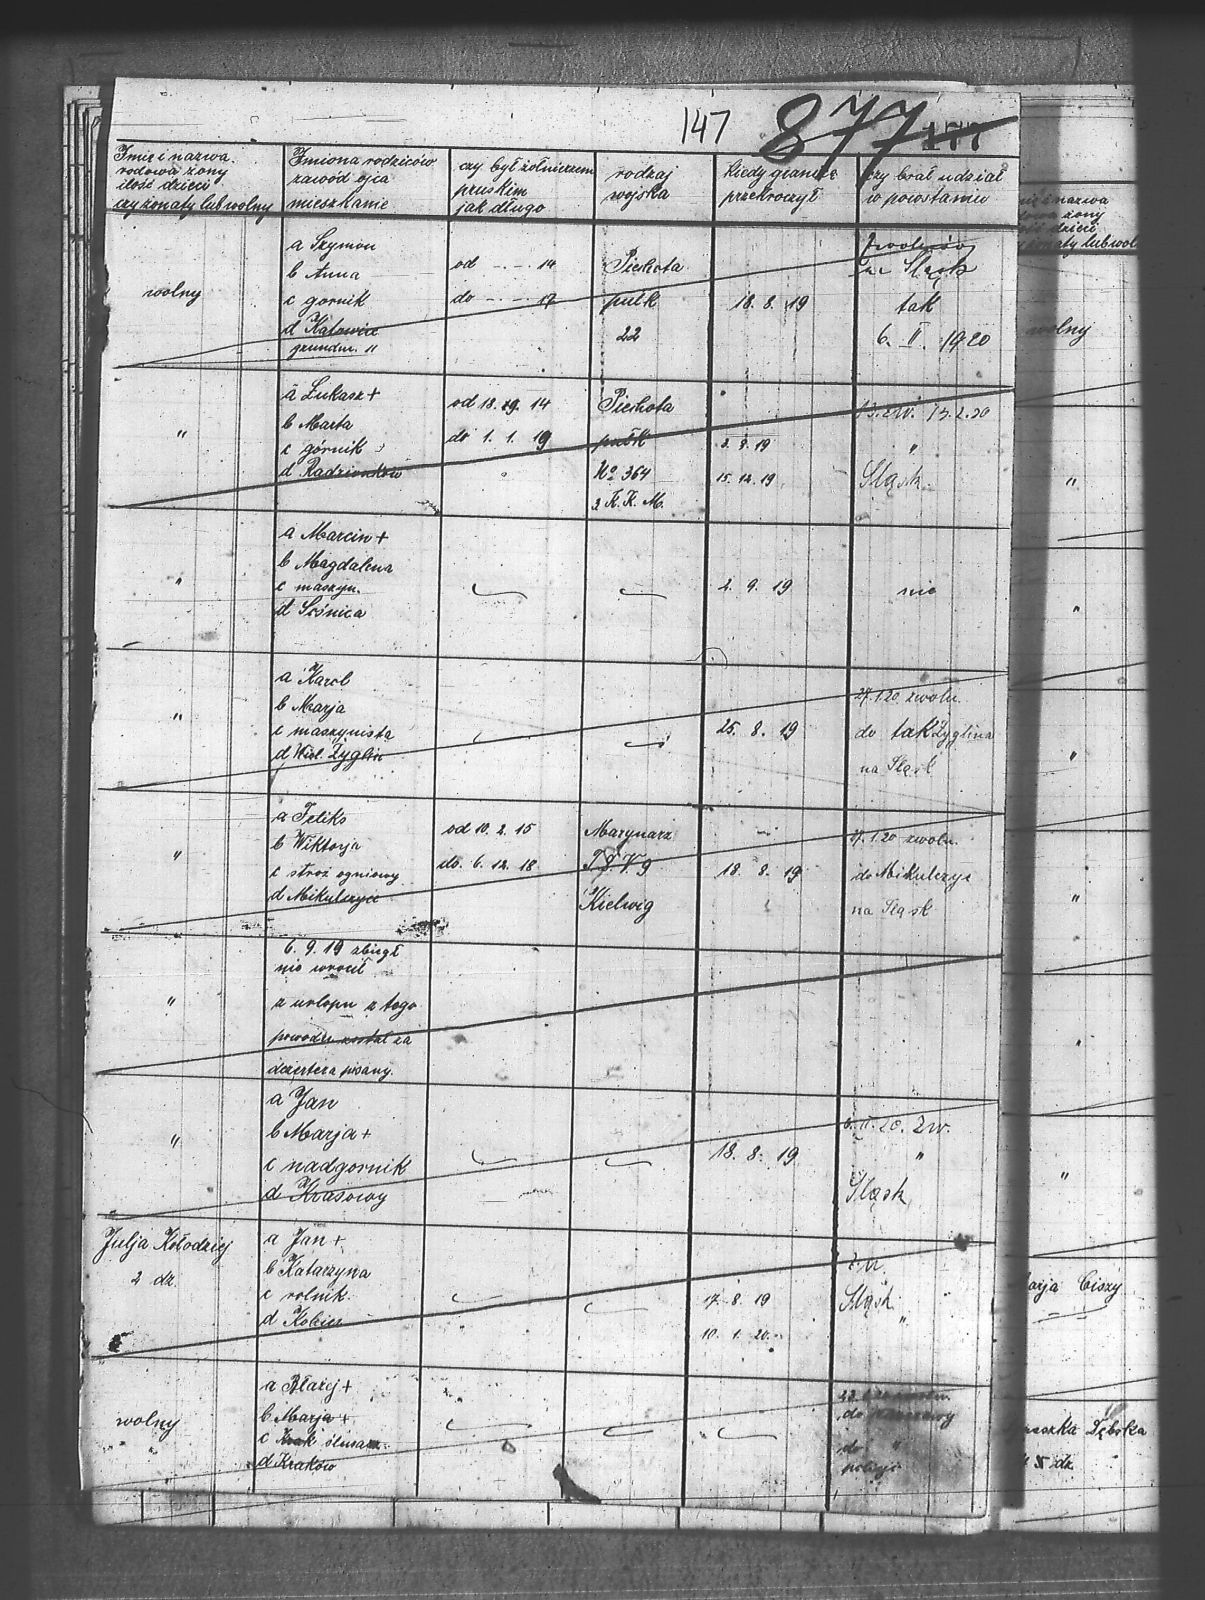 147 877
Imię i nazwa.
rodowa żony
ilość dzieci
czy żonaty lub wolny
Imiona rodziców
zawód ojca
mieszkanie
czy był żołnierzem
pruskim
jak długo
rodzaj
wojska
kiedy granicę
przekroczył
czy brał udział
w powstaniu
wolny
a Szymon
b Anna
c gornik
d Katowice
grundm. 11
od - - - 14
do - - - 17
Piechota
pułk
22
18. 8. 19
Śląsk
tak
6. II. 1920
"
a Łukasz +
b Marta
c górnik
d Radzionków
od 18. 9. 14
do 1. 1. 19
Piechota
pułk
No 364
2 K. K. M.
3. 9. 19
15. 12. 19
13. zw. 13. 2. 20
"
Śląsk.
"
a Marcin +
b Magdalena
c maszyn.
d Sośnica
2. 9. 19
nie
"
a Karol
b Marja
c maszynista
d Wiel. Żyglin
25. 8. 19
27. 1. 20 zwoln.
do tak Żyglina
na Śląsk
"
a Feliks
b Wiktorja
c stroż ogniowy
d Mikulczyce
od 10. 2. 15
do. 6. 12. 18
Marynarz
Kielwig
18. 8. 19
27. 1. 20 zwoln.
do Mikulczyc
na Śląsk
"
6. 9. 19 zbiegł
nie wrocił
z urlopu z tego
powodu został za
dezertera pisany.
"
a Jan
b Marja +
c nadgornik
d Krasowy
18. 8. 19
6. II. 20. Zw.
"
Śląsk
Julja Kołodziej
2 dz.
a Jan +
b Katarzyna
c rolnik
d Kobier
17. 8. 19
10. 1. 20.
zw.
Śląsk
"
wolny
"
a Błażej +
b Marja +
c ślusarz
d Kraków
do
do "
policji
wolny
"
"
"
"
"
"
Marja Ciszy
Dębska
dz.